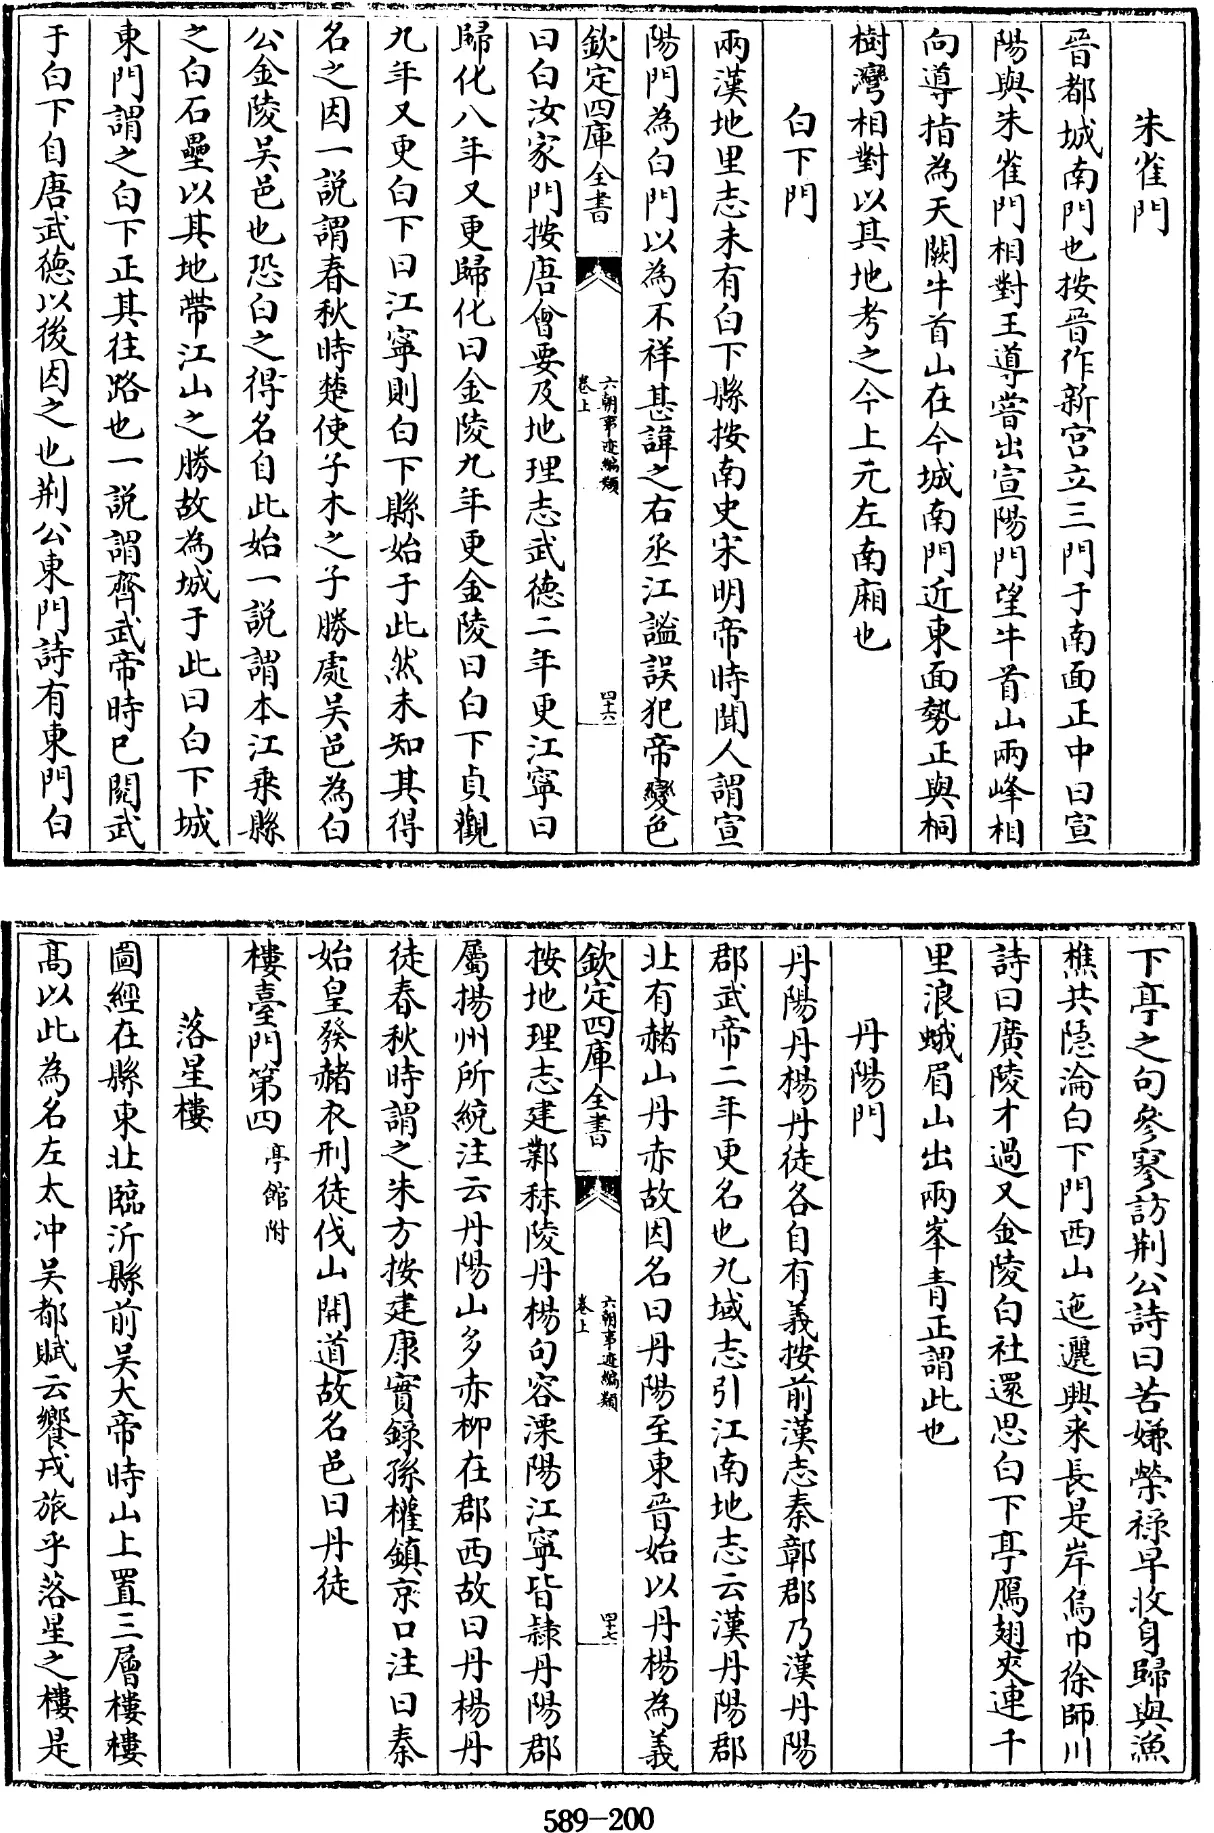 朱雀門
晉都城南門也按晉作新宮立三門于南面正中曰宣
陽與朱雀門相對王導嘗出宣陽門望牛首山兩峰相
向導指為天闕牛首山在今城南門近東面勢正與桐
樹灣相對以其地考之今上元左南廂也
白下門
兩漢地里志未有白下縣按南史宋明帝時聞人謂宣
陽門為白門以為不祥甚諱之右丞江謐誤犯帝變色
欽定四庫全書
六朝事迹編類
卷上
四十六
曰白汝家門按唐會要及地理志武德二年更江寧曰
歸化八年又更歸化曰金陵九年更金陵曰白下貞觀
九年又更白下曰江寧則白下縣始于此然未知其得
名之因一說謂春秋時楚使子木之子勝處吳邑為白
公金陵吳邑也恐白之得名自此始一說謂本江乘縣
之白石壘以其地帶江山之勝故為城于此曰白下城
東門謂之白下正其往路也一說謂齊武帝時已閱武
于白下自唐武德以後因之也荆公東門詩有東門白
下亭之句參寥訪荆公詩曰苦嫌榮祿早收身歸與漁
樵共隱淪白下門西山迤邐興来長是岸烏巾徐師川
詩曰廣陵才過又金陵白社還思白下亭鴈翅夾連千
里浪蛾眉山出兩峯青正謂此也
丹陽門
丹陽丹楊丹徒各自有義按前漢志秦鄣郡乃漢丹陽
郡武帝二年更名也九域志引江南地志云漢丹陽郡
北有赭山丹赤故因名曰丹陽至東晉始以丹楊為義
欽定四庫全書
六朝事迹編類
卷上
四十七
按地理志建鄴秣陵丹楊句容溧陽江寧皆隸丹陽郡
屬揚州所統注云丹陽山多赤柳在郡西故曰丹楊丹
徒春秋時謂之朱方按建康實錄孫權鎮京口注曰秦
始皇發赭衣刑徒伐山開道故名邑曰丹徒
樓臺門第四 亭館附
落星樓
圖經在縣東北臨沂縣前吳大帝時山上置三層樓樓
高以此為名左太冲吳都賦云饗戎旅乎落星之樓是
589-200